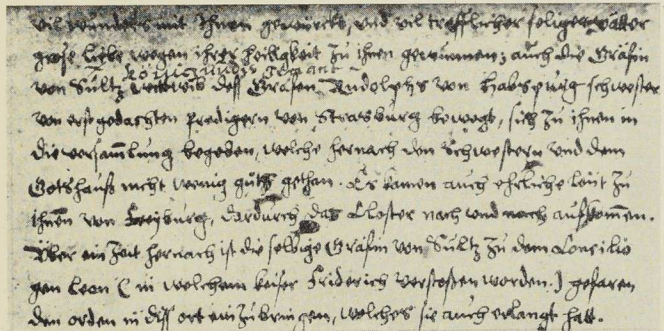 vil wunders mit Ihnen gewürckt, und vil trefflicher seliger vätter
grose liebe wegen ihrer heiligkeit zu ihnen gewunnen; auch die Gräfin
von Sultz wittwib deß Grafen Rudolphs von Habspurg schwester
von erstgedachten Predigern von Strasburg bewegt, sich zu ihnen in
die versamlung begeben, welche hernach den Schwestern und dem
Gotshauß nicht wenig guts gethan. Es kamen auch ehrliche leüt zu
ihnen von Freyburg, dardurch das Closter nach und nach aufkommen.
Über ein Zeit hernach ist die selbige Gräfin von Sultz zu dem Concilio
gen Leon (in welchem keiser Friderich verstoßen worden.) gefaren
den orden in diß ort einzubringen, welches sie auch erlangt hatt.